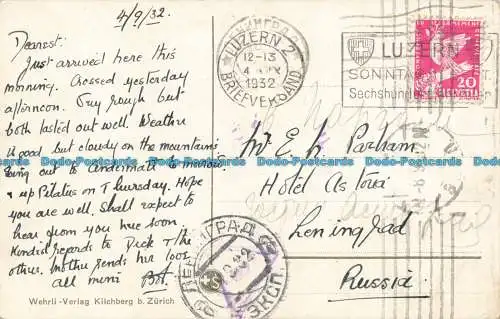 4/9/32.
Dearest:
Just arrived here this
morning. Crossed yesterday
afternoon. Very rough but
both lasted out well. Weather
is good but cloudy on the mountains
Going out to Andermatt to-morrow
& up Pilatus on Thursday. Hope
you are well. Shall expect to
hear from you here soon.
Kindest regards to Dick & the
others. Mother sends her love
all mine
Wehrli-Verlag Kilchberg b. Zürich
LUZERN 2
12-13
1932
BRIEFVERSAND
LUZERN
SONNTA
Sechshun
20
Mr E. L. Parham.
Hotel Astoria
Leningrad
Russia
ЛЕНИНГРАД
ЭКСП.
www.delcampe.net Bobdevoris